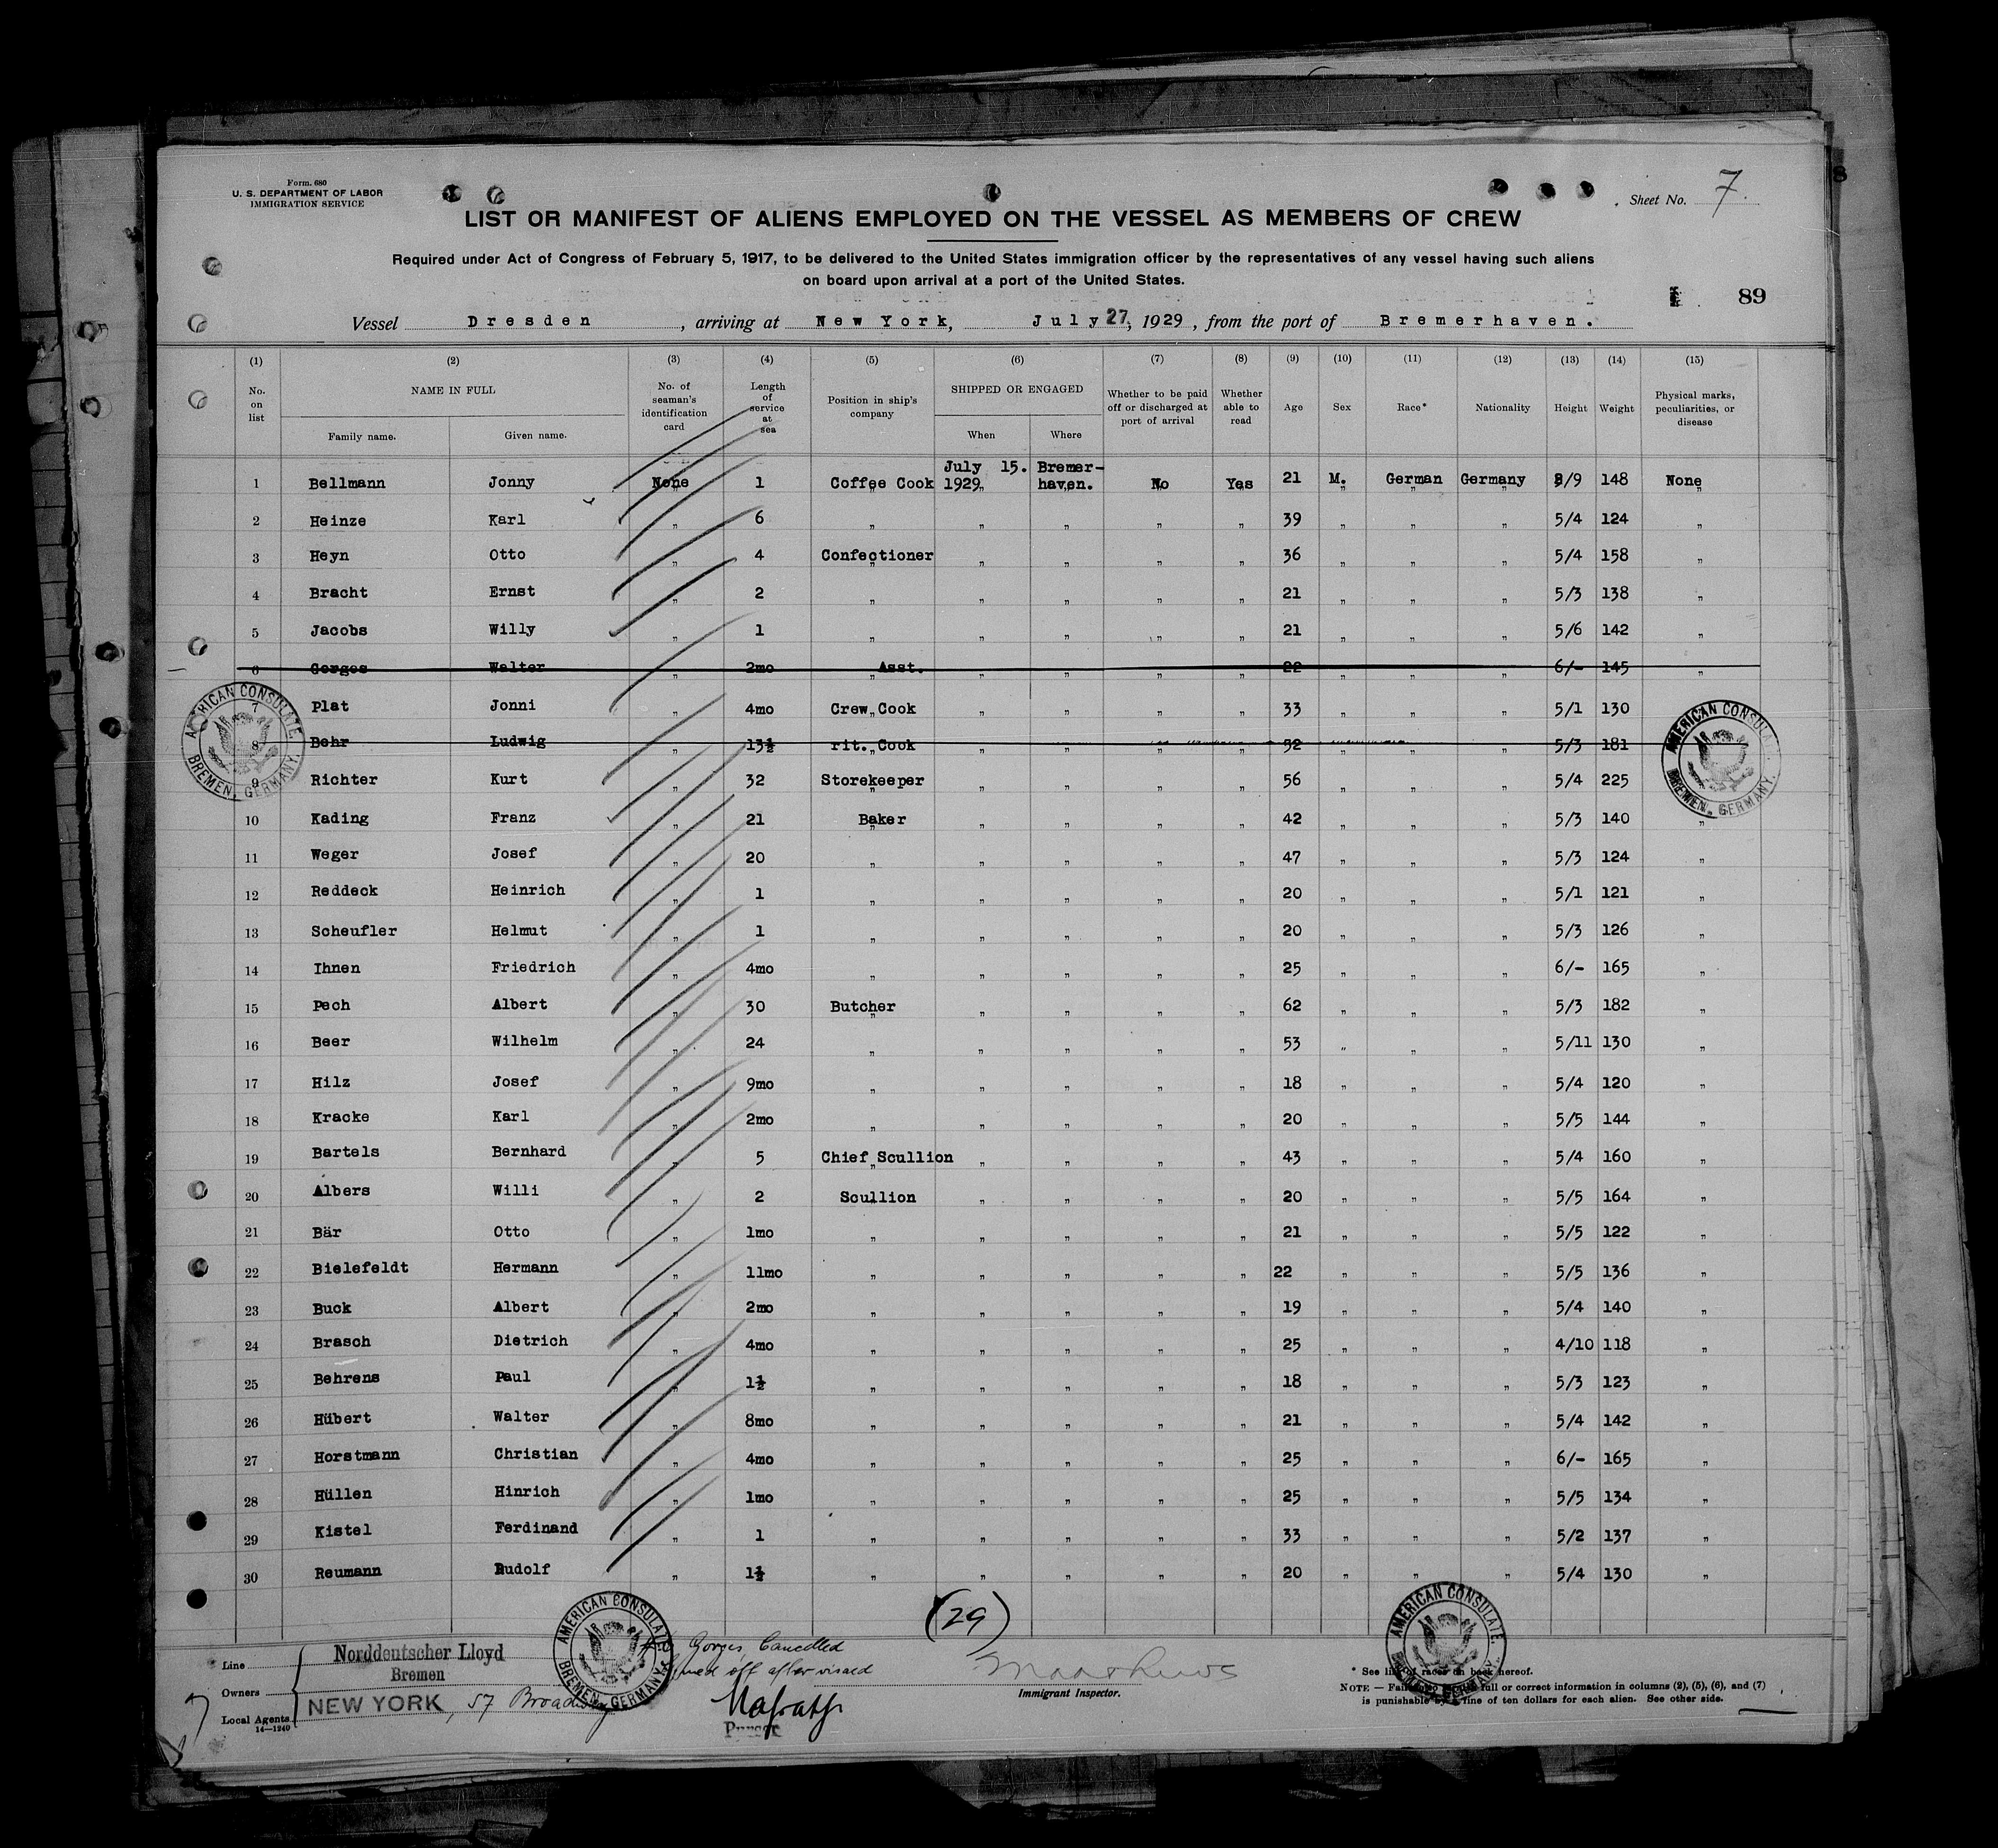 Form. 680
U. S. DEPARTMENT OF LABOR
IMMIGRATION SERVICE
Sheet No. 7.
LIST OR MANIFEST OF ALIENS EMPLOYED ON THE VESSEL AS MEMBERS OF CREW
Required under Act of Congress of February 5, 1917, to be delivered to the United States immigration officer by the representatives of any vessel having such aliens
on board upon arrival at a port of the United States.
89
Vessel Dresden, arriving at New York, July 27, 1929, from the port of Bremerhaven.
(1) (2) (3) (4) (5) (6) (7) (8) (9) (10) (11) (12) (13) (14) (15)
No. on list NAME IN FULL Family name. Given name. No. of seaman's identification card Length of service at sea Position in ship's company SHIPPED OR ENGAGED When Where Whether to be paid off or discharged at port of arrival Whether able to read Age Sex Race* Nationality Height Weight Physical marks, peculiarities, or disease
1 Bellmann Jonny None 1 Coffee Cook July 15. 1929 Bremer-haven. No Yes 21 M. German Germany /9 148 None
2 Heinze Karl „ 6 „ „ „ „ „ 39 „ „ „ 5/4 124 „
3 Heyn Otto „ 4 Confectioner „ „ „ „ 36 „ „ „ 5/4 158 „
4 Bracht Ernst „ 2 „ „ „ „ „ 21 „ „ „ 5/3 138 „
5 Jacobs Willy „ 1 „ „ „ „ „ 21 „ „ „ 5/6 142 „
6 Gorges Walter „ 2mo „ Asst. „ „ „ „ 22 „ „ „ 6/- 145 „
7 Plat Jonni „ 4mo Crew Cook „ „ „ „ 33 „ „ „ 5/1 130
8 Behr Ludwig „ 13½ rit. Cook „ „ „ „ 52 „ „ „ 5/3 181
9 Richter Kurt „ 32 Storekeeper „ „ „ „ 56 „ „ „ 5/4 225
10 Kading Franz „ 21 Baker „ „ „ „ 42 „ „ „ 5/3 140 „
11 Weger Josef „ 20 „ „ „ „ „ 47 „ „ „ 5/3 124 „
12 Reddeck Heinrich „ 1 „ „ „ „ „ 20 „ „ „ 5/1 121 „
13 Scheufler Helmut „ 1 „ „ „ „ „ 20 „ „ „ 5/3 126 „
14 Ihnen Friedrich „ 4mo „ „ „ „ „ 25 „ „ „ 6/- 165 „
15 Pech Albert „ 30 Butcher „ „ „ „ 62 „ „ „ 5/3 182 „
16 Beer Wilhelm „ 24 „ „ „ „ „ 53 „ „ „ 5/11 130 „
17 Hilz Josef „ 9mo „ „ „ „ „ 18 „ „ „ 5/4 120 „
18 Kracke Karl „ 2mo „ „ „ „ „ 20 „ „ „ 5/5 144 „
19 Bartels Bernhard „ 5 Chief Scullion „ „ „ „ 43 „ „ „ 5/4 160 „
20 Albers Willi „ 2 Scullion „ „ „ „ 20 „ „ „ 5/5 164 „
21 Bär Otto „ 1mo „ „ „ „ „ 21 „ „ „ 5/5 122 „
22 Bielefeldt Hermann „ 11mo „ „ „ „ „ 22 „ „ „ 5/5 136 „
23 Buck Albert „ 2mo „ „ „ „ „ 19 „ „ „ 5/4 140 „
24 Brasch Dietrich „ 4mo „ „ „ „ „ 25 „ „ „ 4/10 118 „
25 Behrens Paul „ 1½ „ „ „ „ „ 18 „ „ „ 5/3 123 „
26 Hübert Walter „ 8mo „ „ „ „ „ 21 „ „ „ 5/4 142 „
27 Horstmann Christian „ 4mo „ „ „ „ „ 25 „ „ „ 6/- 165 „
28 Hüllen Hinrich „ 1mo „ „ „ „ „ 25 „ „ „ 5/5 134 „
29 Kistel Ferdinand „ 1 „ „ „ „ „ 33 „ „ „ 5/2 137 „
30 Reumann Rudolf „ 1½ „ „ „ „ „ 20 „ „ „ 5/4 130 „
AMERICAN CONSULATE. BREMEN, GERMANY.
AMERICAN CONSULATE. BREMEN, GERMANY.
(29)
AMERICAN CONSULATE. BREMEN, GERMANY.
AMERICAN CONSULATE. BREMEN, GERMANY.
Line Norddeutscher Lloyd
Bremen
Owners
Local Agents NEW YORK, 57 Broadway
14—1240
Gorges, Cancelled
off after visaed
Purser
Immigrant Inspector.
* See list of races on back hereof.
NOTE — Failure to full or correct information in columns (2), (5), (6), and (7)
is punishable by a fine of ten dollars for each alien. See other side.